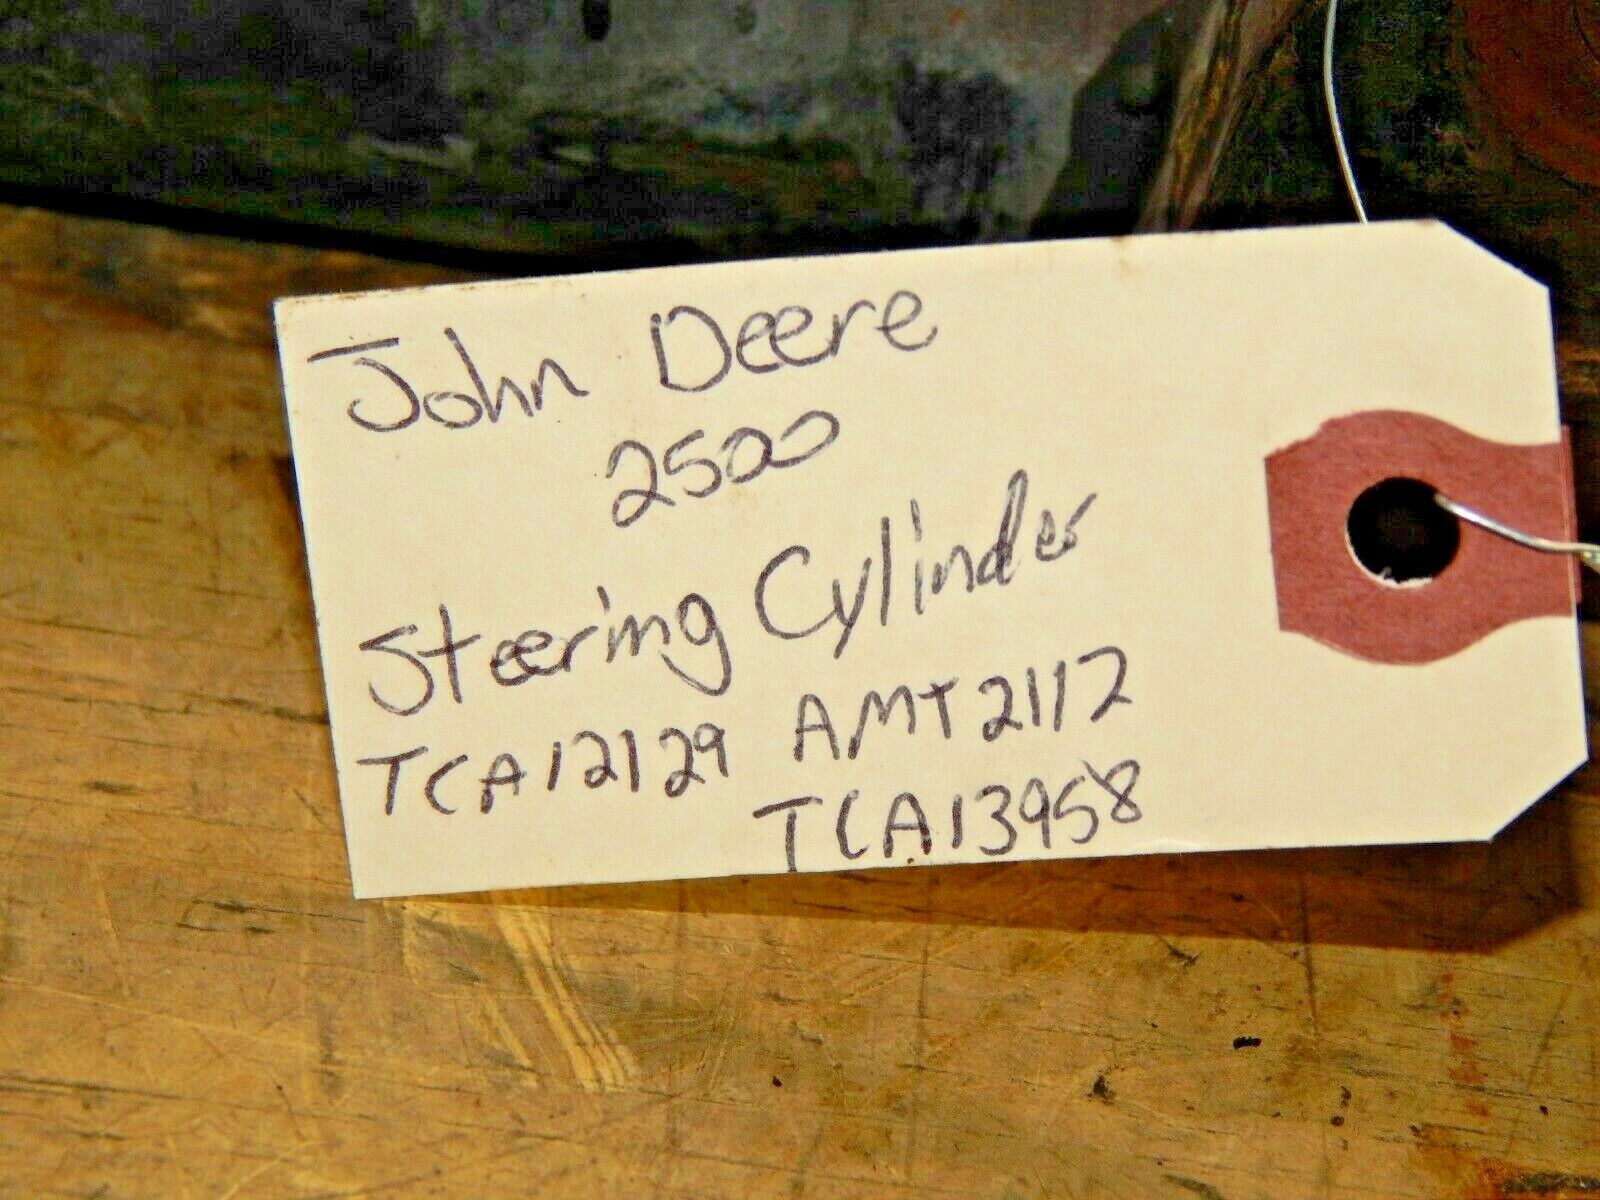 John Deere
2500
Steering Cylinder
TCA12129 AMT2112
TCA13958